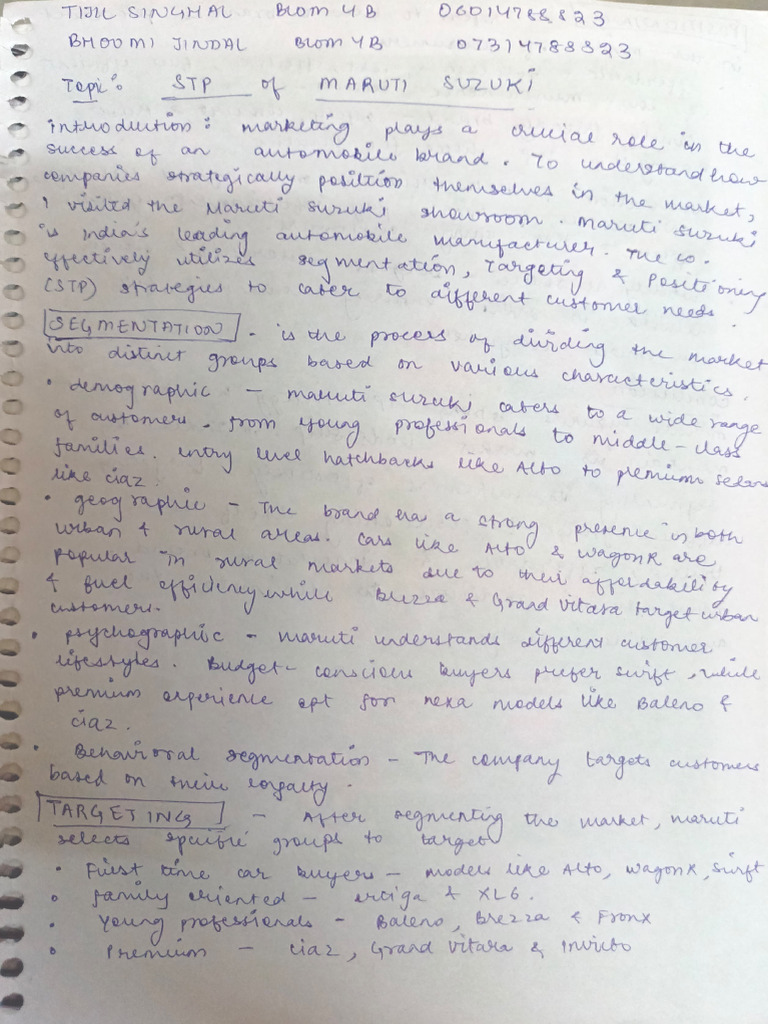 TIJIL SINGHAL BCOM 4B 06014788823
BHOOMI JINDAL BCOM 4B 07314788823
Topic: STP of MARUTI SUZUKI
introduction: marketing plays a crucial role in the
success of an automobile brand. To understand how
companies strategically position themselves in the market,
I visited the Maruti Suzuki showroom. Maruti Suzuki
is India's leading automobile manufacturer. The co.
effectively utilizes segmentation, Targeting & Positioning
(STP) strategies to cater to different customer needs.
SEGMENTATION - is the process of dividing the market
into distinct groups based on various characteristics.
• demographic - maruti suzuki caters to a wide range
of customers. from young professionals to middle-class
families. entry level hatchbacks like Alto to premium sedans
like ciaz.
• geographic - The brand has a strong presence in both
urban & rural areas. cars like Alto & wagonR are
popular in rural markets due to their affordability
& fuel efficiency while Brezza & Grand vitara target urban
customers.
• psychographic - maruti understands different customer
lifestyles. Budget-conscious buyers prefer swift, while
premium experience opt for nexa models like Baleno &
ciaz.
• Behavioral segmentation - The company targets customers
based on their loyalty.
TARGETING - After segmenting the market, maruti
selects specific groups to target
• First time car buyers - models like Alto, wagonR, swift
• family oriented - ertiga & XL6.
• Young professionals - Baleno, Brezza & Fronx
• Premium - ciaz, Grand vitara & Invicto